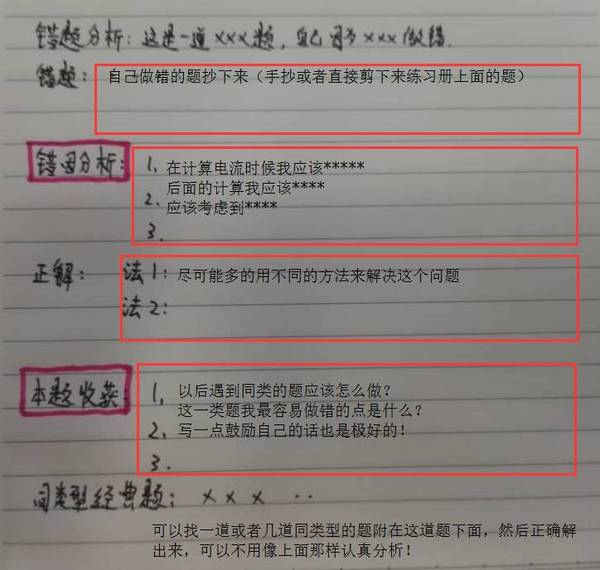 错题分析：这是一道×××题，自己因为×××做错.
错题： 自己做错的题抄下来（手抄或者直接剪下来练习册上面的题）
错因分析： 1、在计算电流时候我应该*****
2、后面的计算我应该****
应该考虑到****
3.
正解： 法1：尽可能多的用不同的方法来解决这个问题
法2：
本题收获： 1、以后遇到同类的题应该怎么做？
这一类题我最容易做错的点是什么？
2、写一点鼓励自己的话也是极好的！
3.
同类型经典题： × × × ··
可以找一道或者几道同类型的题附在这道题下面，然后正确解
出来，可以不用像上面那样认真分析！